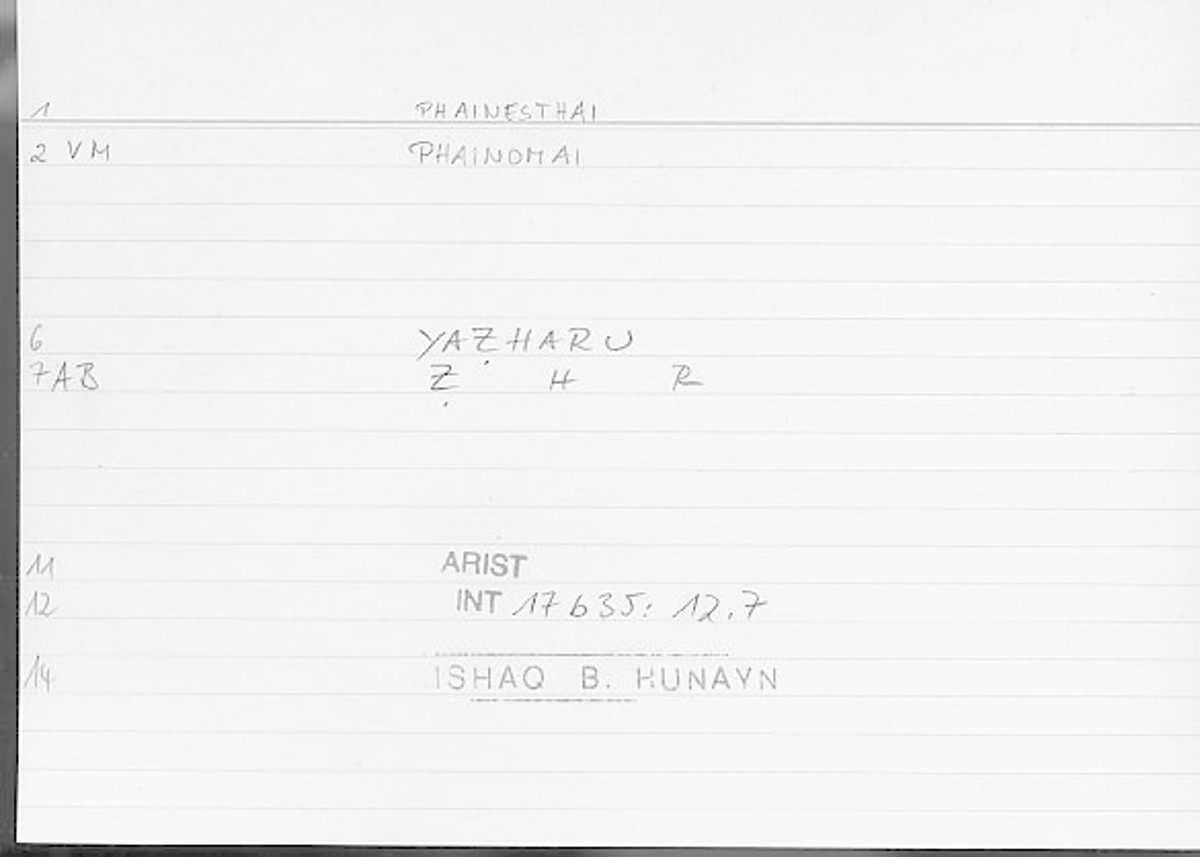 1 PHAINESTHAI
2 VM PHAINOMAI
6 YAẒHARU
7AB Ẓ H R
11 ARIST
12 INT 17b35: 12.7
14 ISHAQ B. HUNAYN